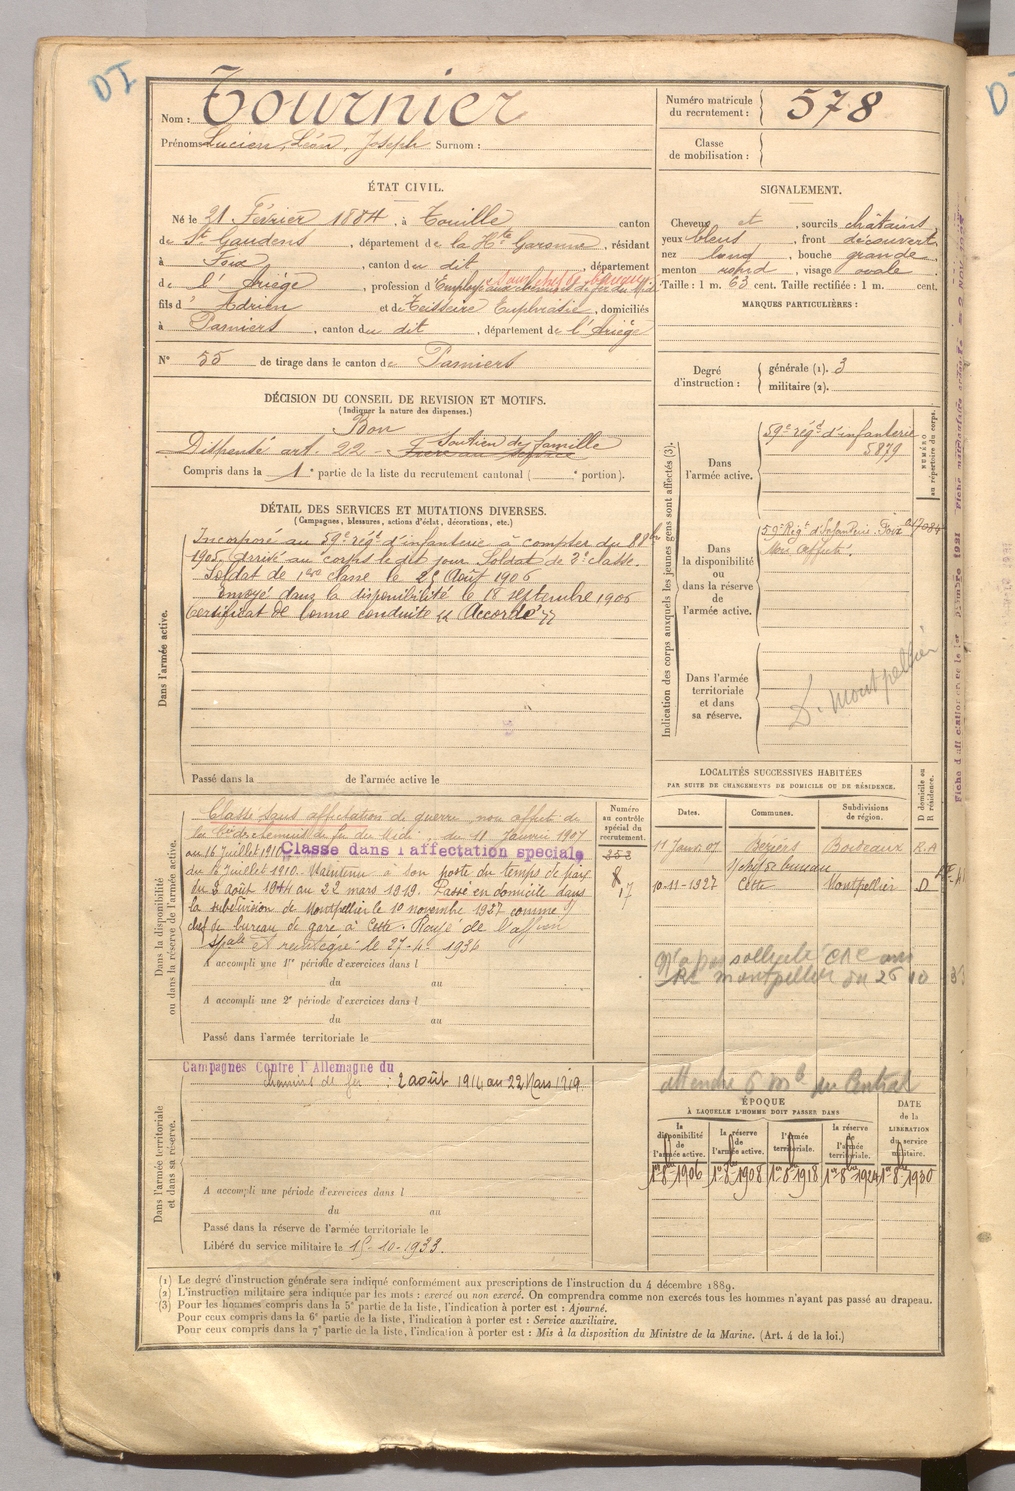 DI
Nom : Tournier
Prénoms Lucien, Léon, Joseph Surnom :
Numéro matricule du recrutement : 578
Classe de mobilisation :
ÉTAT CIVIL.
Né le 21 Février 1884, à Touille canton
de St Gaudens, département de la Hte Garonne, résidant
à Foix, canton du dit, département
de l'Ariège, profession d'Employé aux chemins de fer du Midi
fils d'Adrien et de Teisseire Euphrasie, domiciliés
à Pamiers, canton du dit, département de l'Ariège
N° 55 de tirage dans le canton de Pamiers
SIGNALEMENT.
Cheveux et, sourcils châtains
yeux bleus, front découvert
nez long, bouche grande
menton rond, visage ovale
Taille : 1 m. 63 cent. Taille rectifiée : 1 m. cent.
MARQUES PARTICULIÈRES :
Degré d'instruction : générale (1). 3
militaire (2).
DÉCISION DU CONSEIL DE REVISION ET MOTIFS.
(Indiquer la nature des dispenses.)
Bon
Dispensé art. 22 - Soutien de famille
Frère au service
Compris dans la 1e partie de la liste du recrutement cantonal ( e portion).
DÉTAIL DES SERVICES ET MUTATIONS DIVERSES.
(Campagnes, blessures, actions d'éclat, décorations, etc.)
Dans l'armée active.
Incorporé au 59e régt d'infanterie à compter du 8 8bre
1905. Arrivé au corps le dit jour Soldat de 2e classe.
Soldat de 1ère classe le 25 Août 1906
Envoyé dans la disponibilité le 18 septembre 1906
Certificat de bonne conduite "Accordé"
Passé dans la de l'armée active le
Indication des corps auxquels les jeunes gens sont affectés (3).
NUMÉRO au répertoire du corps.
Dans l'armée active.
59e régt d'infanterie
5879
Dans la disponibilité ou dans la réserve de l'armée active.
59e Régt d'Infanterie. Foix
Non affecté.
Dans l'armée territoriale et dans sa réserve.
D. Montpellier
Dans la disponibilité ou dans la réserve de l'armée active.
Numéro au contrôle spécial du recrutement.
Classé sans affectation de guerre, non affecté de
la Cie des chemins de fer du Midi du 11 Janvier 1907
au 16 Juillet 1910. Classé dans l'affectation spéciale
du 16 juillet 1910. Maintenu à son poste du temps de paix
du 3 août 1914 au 22 mars 1919. Passé en domicile dans
la subdivision de Montpellier le 10 novembre 1927 comme s/
chef de bureau de gare à Cette. Rayé de l'affon
spale et réintégré le 27-4-1934
A accompli une 1re période d'exercices dans l
du au
A accompli une 2e période d'exercices dans l
du au
Passé dans l'armée territoriale le
LOCALITÉS SUCCESSIVES HABITÉES
PAR SUITE DE CHANGEMENTS DE DOMICILE OU DE RÉSIDENCE.
Dates. Communes. Subdivisions de région. D domicile ou R résidence.
11 Janv. 07 Béziers Bordeaux R.A
s/chef de bureau
10-11-1927 Cette Montpellier D
Dans l'armée territoriale et dans sa réserve.
Campagnes Contre l'Allemagne du
chemins de fer : 2 août 1914 au 22 Mars 1919.
A accompli une période d'exercices dans l
du au
Passé dans la réserve de l'armée territoriale le
Libéré du service militaire le 15-10-1933.
ÉPOQUE
À LAQUELLE L'HOMME DOIT PASSER DANS
la disponibilité de l'armée active. la réserve de l'armée active. l'armée territoriale. la réserve de l'armée territoriale. DATE de la LIBÉRATION du service militaire.
1er 8bre 1906 1er 8bre 1908 1er 8bre 1918 1er 8bre 1924 1er 8bre 1930
(1) Le degré d'instruction générale sera indiqué conformément aux prescriptions de l'instruction du 4 décembre 1889.
(2) L'instruction militaire sera indiquée par les mots : exercé ou non exercé. On comprendra comme non exercés tous les hommes n'ayant pas passé au drapeau.
(3) Pour les hommes compris dans la 5e partie de la liste, l'indication à porter est : Ajourné.
Pour ceux compris dans la 6e partie de la liste, l'indication à porter est : Service auxiliaire.
Pour ceux compris dans la 7e partie de la liste, l'indication à porter est : Mis à la disposition du Ministre de la Marine. (Art. 4 de la loi.)